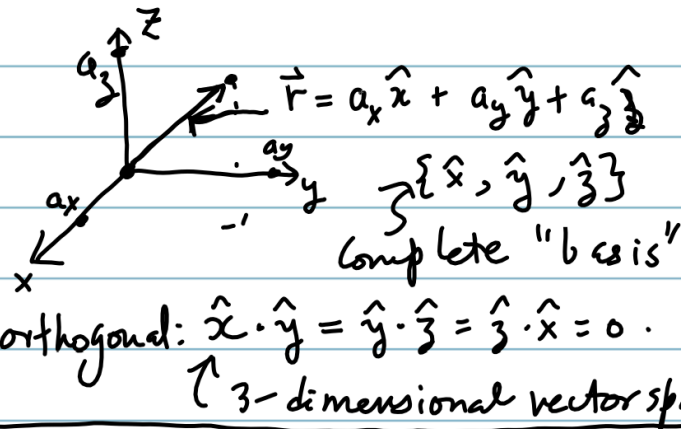 z
a_z
r⃗ = a_x x̂ + a_y ŷ + a_z ẑ
a_y
y
a_x
x
{x̂, ŷ, ẑ}
Complete "basis"
orthogonal: x̂ · ŷ = ŷ · ẑ = ẑ · x̂ = 0 .
3-dimensional vector sp.